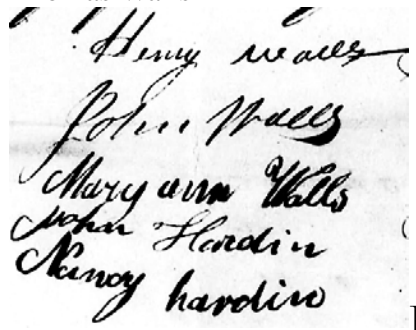 Henry walls
John Walls
Mary ann Walls
John Hardin
Nancy hardin